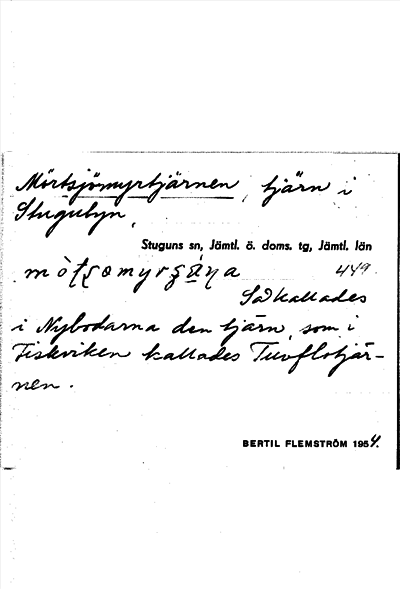 Mörtsjömyrtjärnen, tjärn i
Stugubyn,
Stuguns sn, Jämtl. ö. doms. tg, Jämtl. län
449.
Så kallades
i Nybodarna den tjärn, som i
Fiskviken kallades Tuvflotjär-
nen.
BERTIL FLEMSTRÖM 1954.